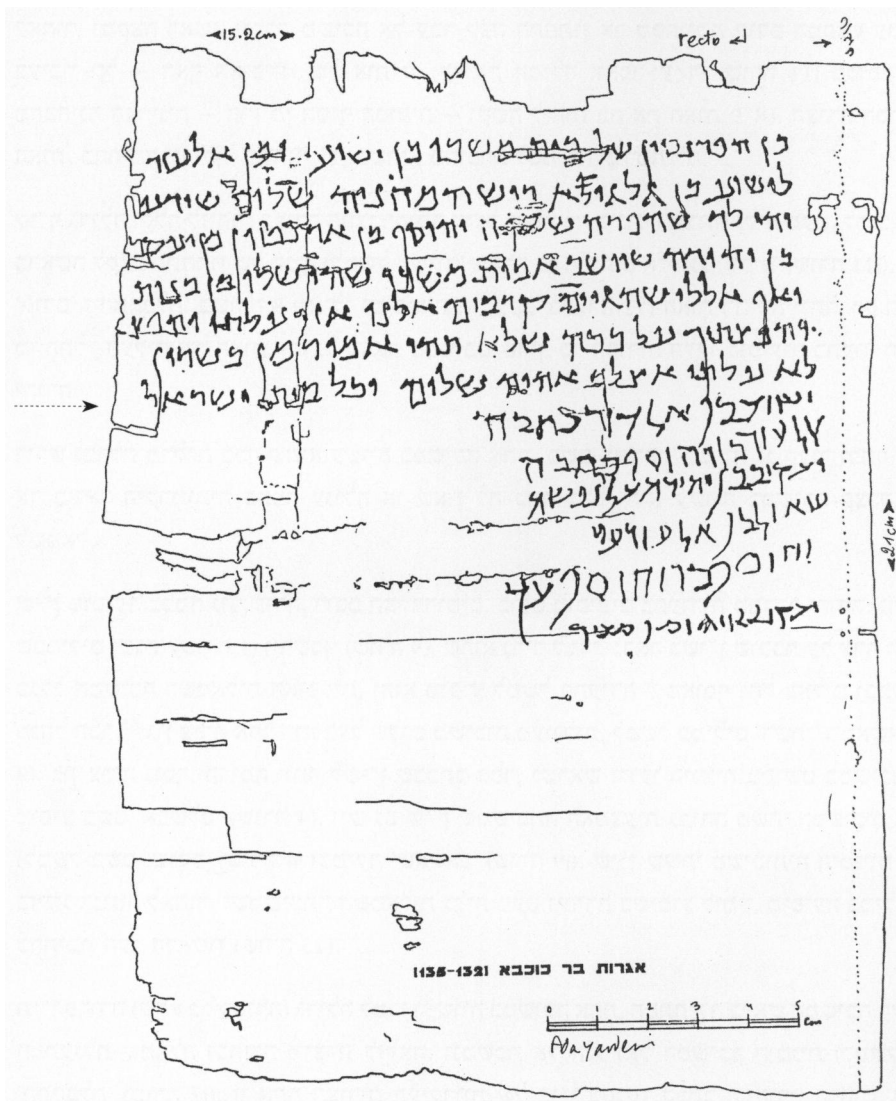 15.2cm
recto
מן הפרנסין של בית משכו מן ישוע ומן אלעזר
לישוע בן גלגולא ריש המחניה שלום שידע
יהי לך שהפרה שלקח יהוסף בן אריסטון מן יעקב
בן יהודה שיושב בית משכו שהי שלו מזנות
ואף אללי שהגאים קרבים אלנו אזי עלתי
והפיסתך על ככה שלא תהי אומר מן בסרון
לא עלתי אצלך אהוה שלום וכל בית ישראל
ישוע בן אלעזר כתבה
אלעזר בן יהוסף כתבה
יעקב בן יהודה על נפשה
שאול בן אלעזר עד
יהוסף בן יהוסף עד
יעקב בן יהוסף מעיד
21cm
אגרות בר כוכבא (135-132)
1 2 3 4 5 cm
Ada Yardeni